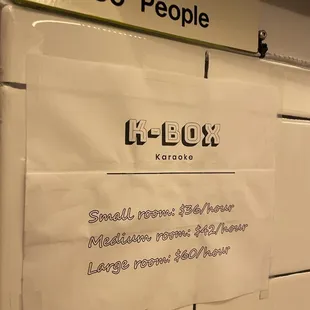 People
K-BOX
Karaoke
Small room: $36/hour
Medium room: $42/hour
Large room: $60/hour